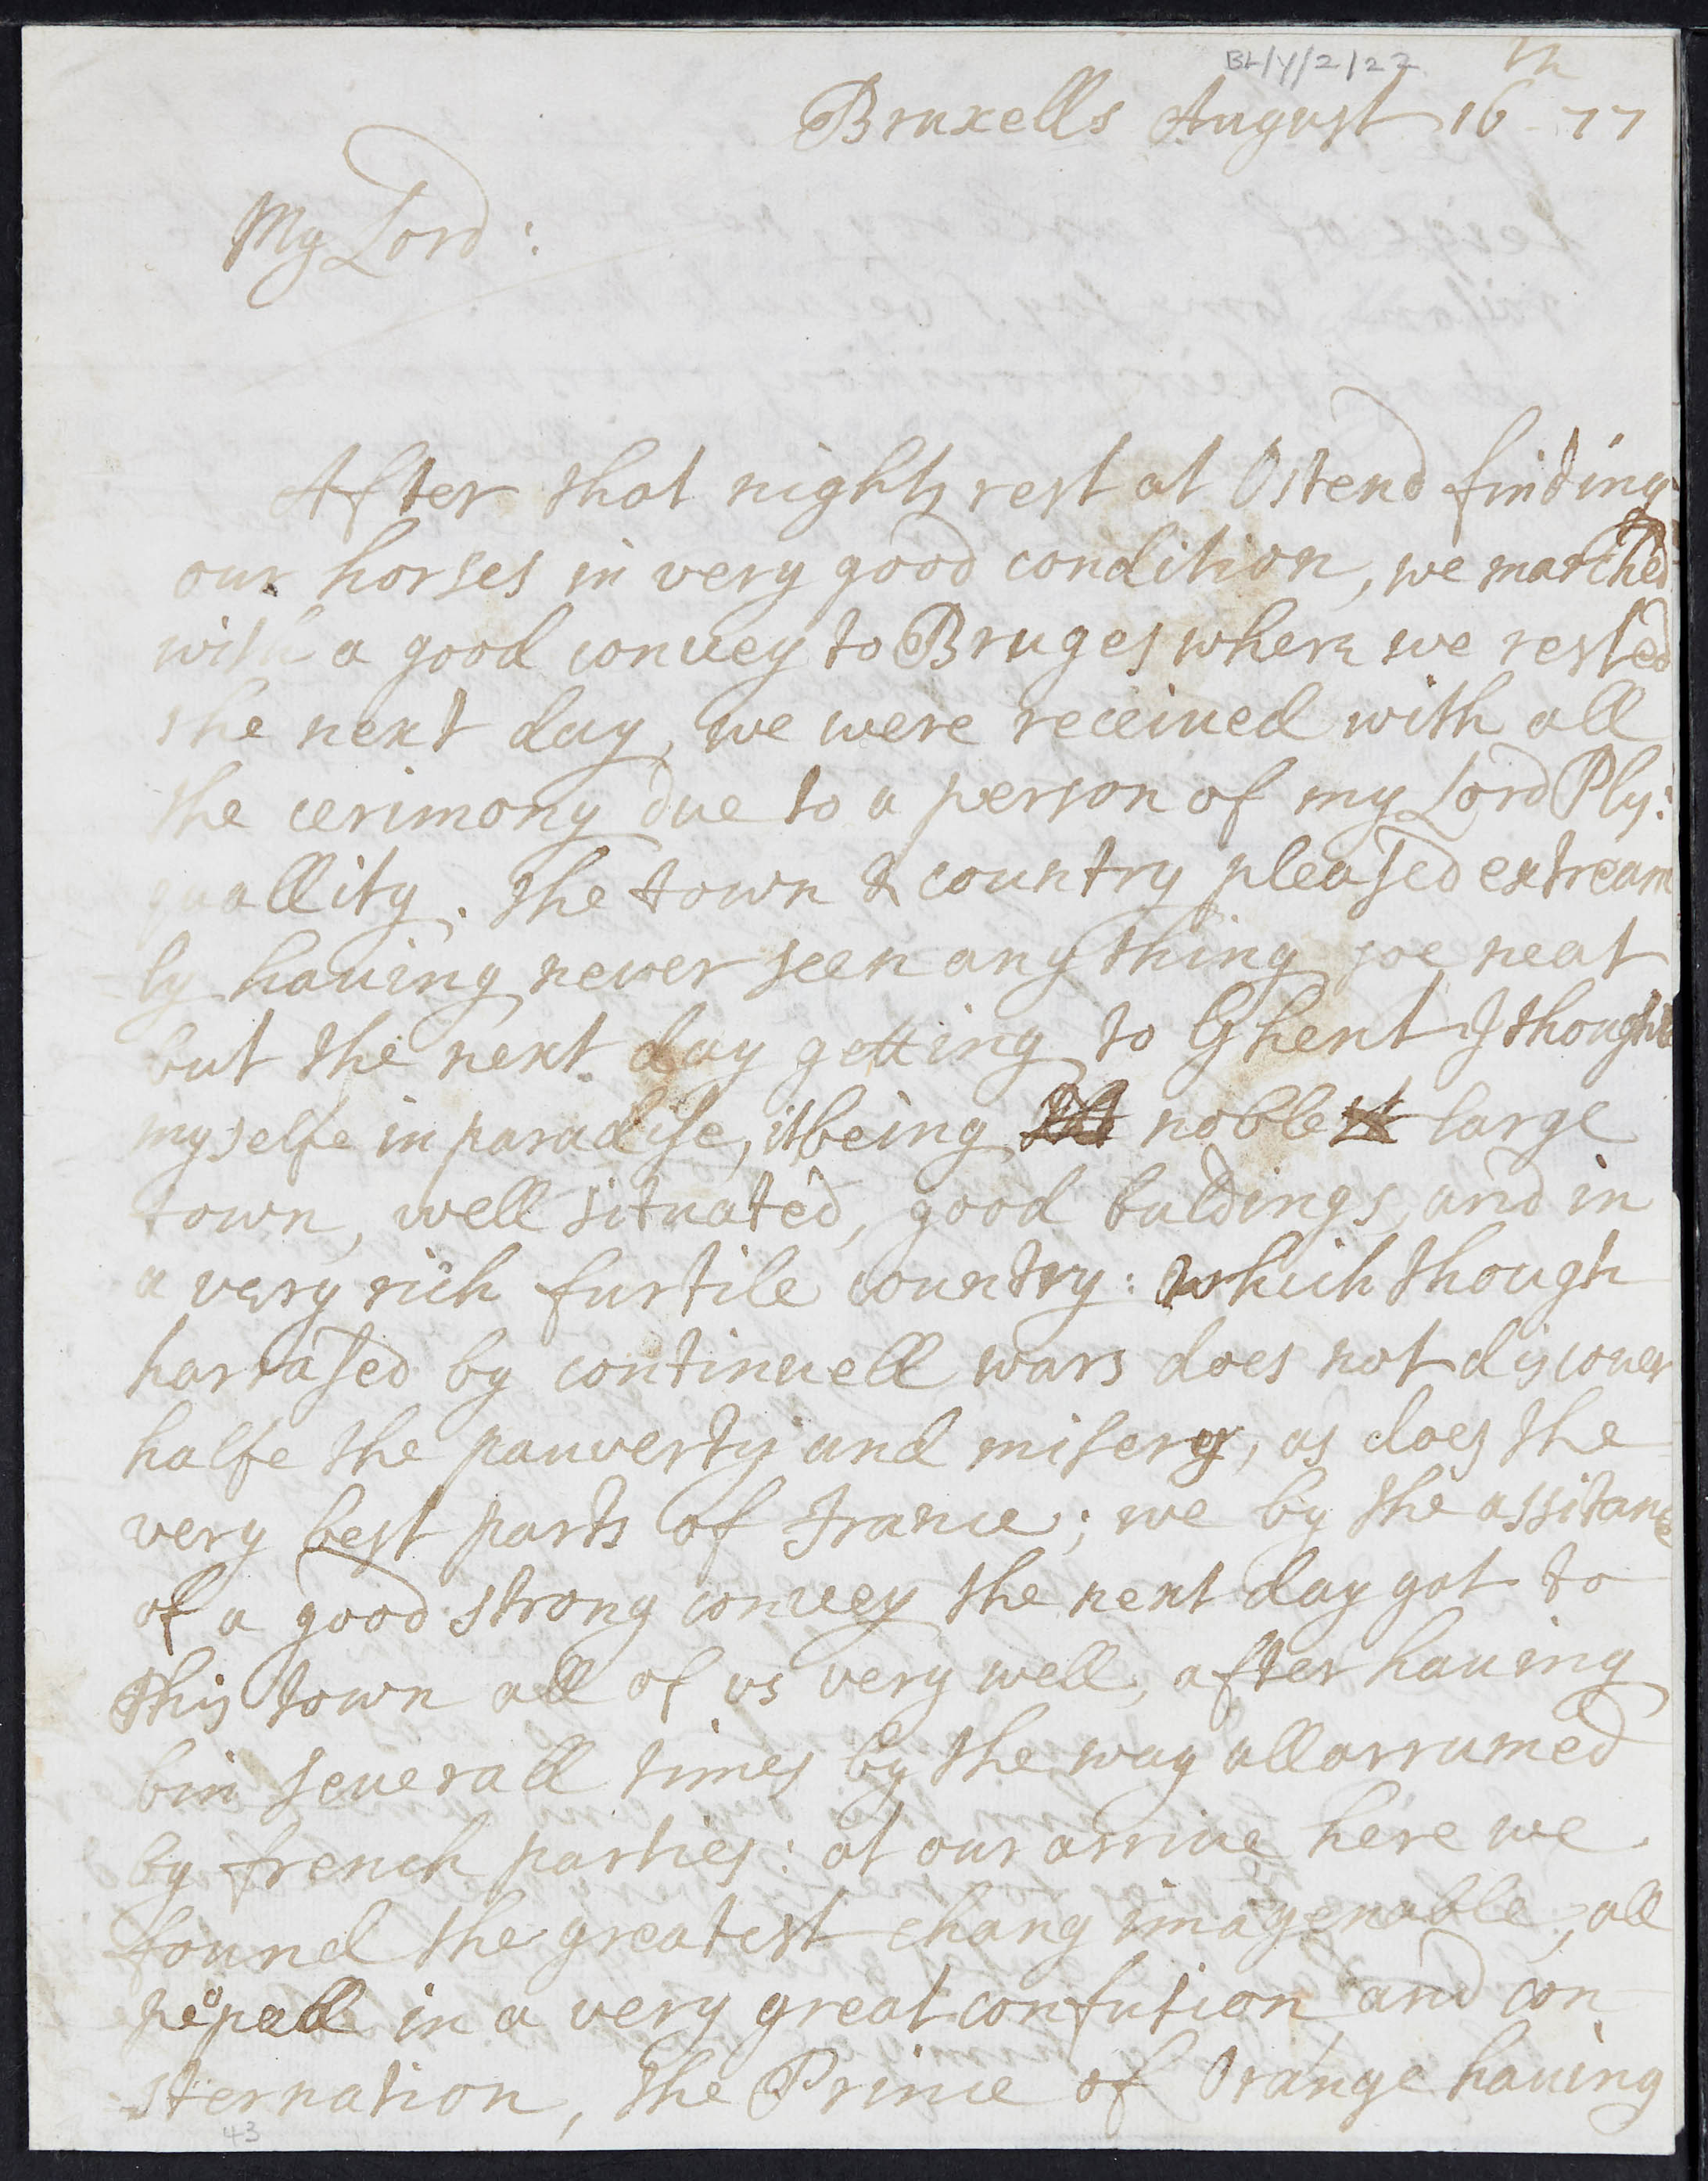 BL/Y/2/22
Bruxells August 16th 77
My Lord:
After that nights rest at Ostend finding
our horses in very good condition, we marched
with a good convey to Bruges where we rested
the next day, we were receiued with all
the cerimony due to a person of my Lord Ply:
quallity. the town & country pleased extream
ly hauing never seen any thing soe neat
but the next day getting to Ghent I thought
myselfe in paradise, it being noble large
town, well situated, good buldings, and in
a very rich furtile country: which though
harrased by continuell wars does not discouer
halfe the pauverty and misery, as does the
very best parts of France; we by the assitance
of a good strong conuey the next day got to
this town all of us very well, after hauing
bin seuerall times by the way allarrumed
by french parties: at our arriue here we
found the greatest chang imagenable, all
peopell in a very great confution and con
sternation, the Prince of Orange hauing
43